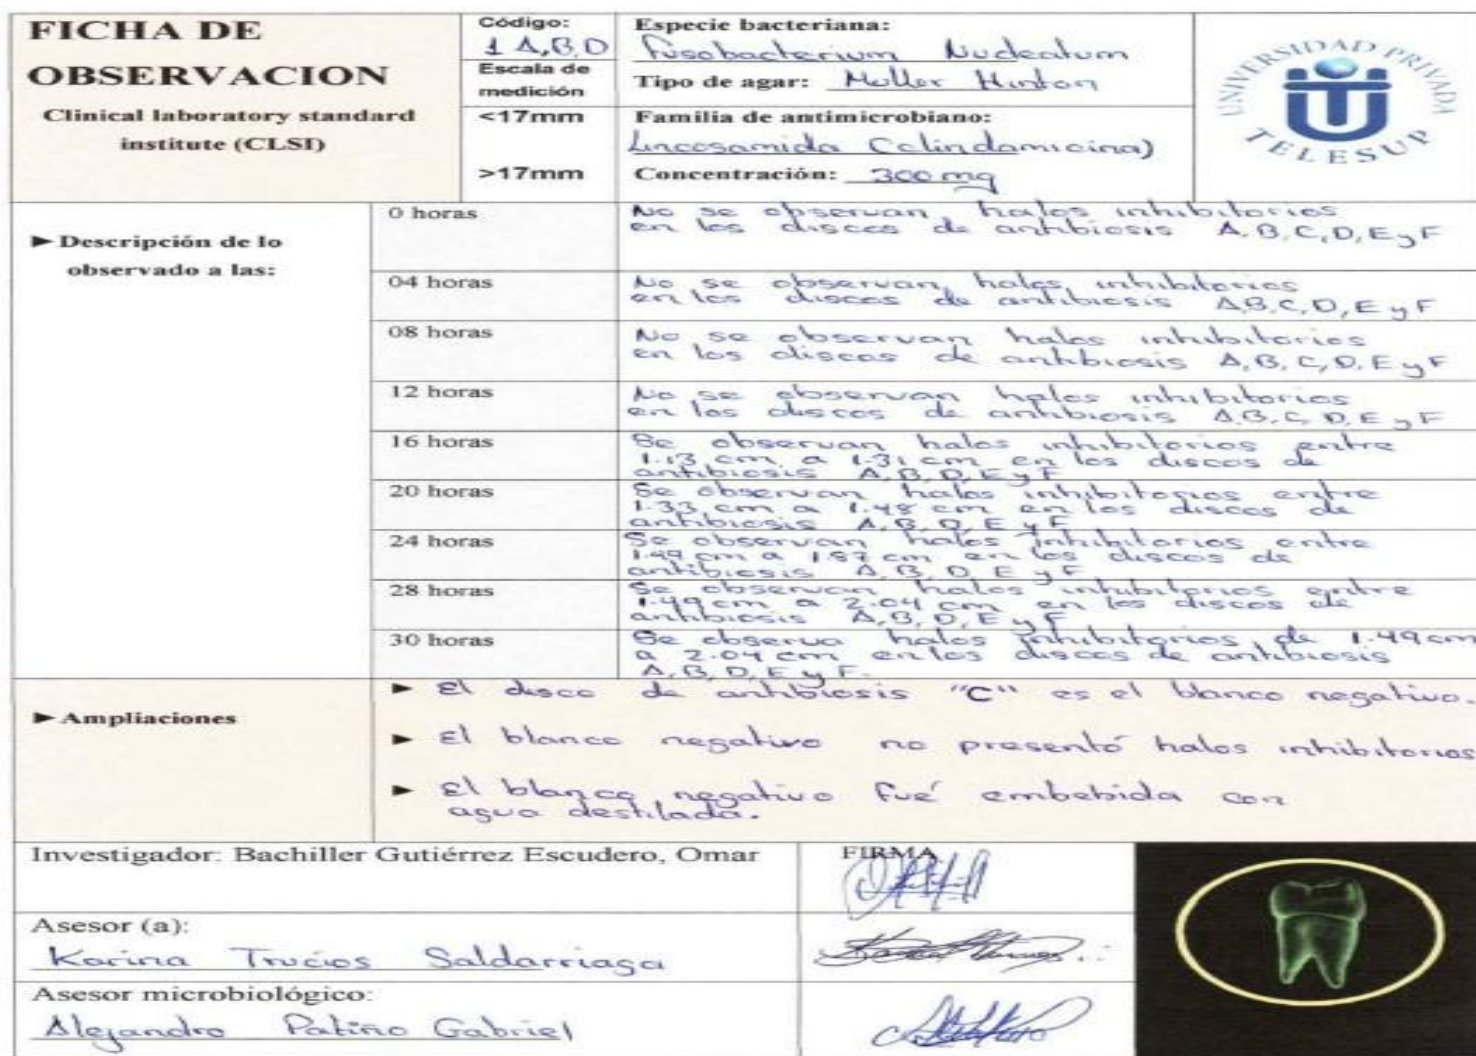 FICHA DE
OBSERVACION
Clinical laboratory standard
institute (CLSI)
Código:
1 A,B,D
Escala de
medición
<17mm
>17mm
Especie bacteriana:
Fusobacterium Nucleatum
Tipo de agar: Muller Hinton
Familia de antimicrobiano:
Lincosamida (clindamicina)
Concentración: 300 mg
UNIVERSIDAD PRIVADA
TELESUP
►Descripción de lo
observado a las:
0 horas
No se observan halos inhibitorios
en los discos de antibiosis A,B,C,D,E y F
04 horas
No se observan halos inhibitorios
en los discos de antibiosis A,B,C,D,E y F
08 horas
No se observan halos inhibitorios
en los discos de antibiosis A,B,C,D,E y F
12 horas
No se observan halos inhibitorios
en los discos de antibiosis A,B,C,D,E y F
16 horas
Se observan halos inhibitorios entre
1.13 cm a 1.31 cm en los discos de
antibiosis A,B,D,E y F
20 horas
Se observan halos inhibitorios entre
1.33 cm a 1.48 cm en los discos de
antibiosis A,B,D,E y F
24 horas
Se observan halos inhibitorios entre
1.49 cm a 1.87 cm en los discos de
antibiosis A,B,D,E y F
28 horas
Se observan halos inhibitorios entre
1.49 cm a 2.04 cm en los discos de
antibiosis A,B,D,E y F
30 horas
Se observa halos inhibitorios de 1.49 cm
a 2.04 cm en los discos de antibiosis
A,B,D,E y F.
►Ampliaciones
► El disco de antibiosis "C" es el blanco negativo.
► El blanco negativo no presentó halos inhibitorios
► El blanco negativo fué embebida con
agua destilada.
Investigador: Bachiller Gutiérrez Escudero, Omar
FIRMA
Asesor (a):
Karina Trucios Saldarriaga
Asesor microbiológico:
Alejandro Patiño Gabriel